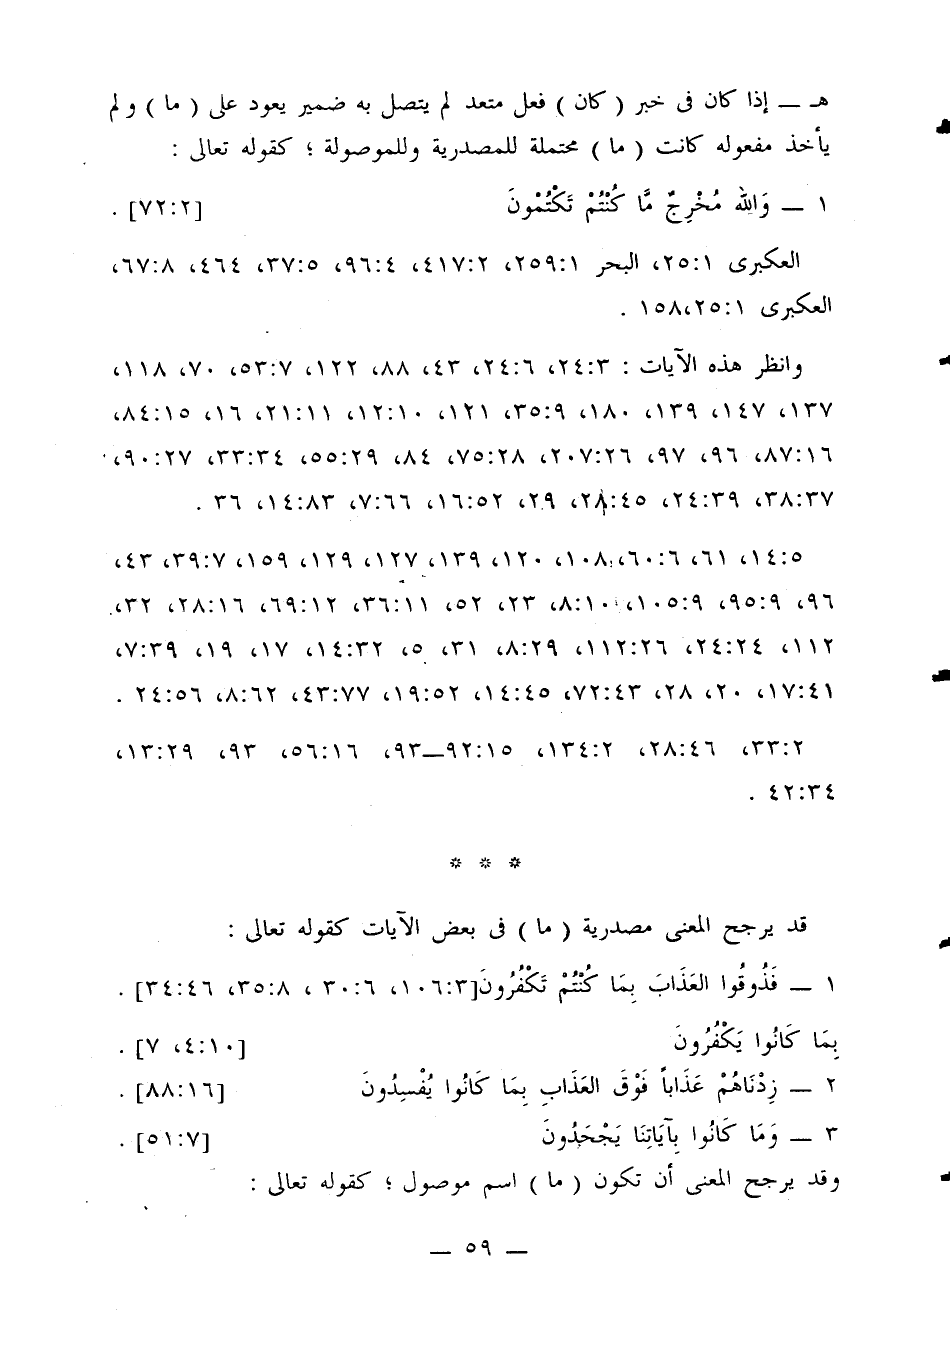 هـ ــ إذا كان فى خبر ( كان ) فعل متعد لم يتصل به ضمير يعود على ( ما ) ولم
يأخذ مفعوله كانت ( ما ) محتملة للمصدرية وللموصولة ؛ كقوله تعالى :
١ ــ وَاللهُ مُخْرِجٌ مَّا كُنْتُمْ تَكْتُمُونَ [٧٢:٢] .
العكبرى ٢٥:١، البحر ٢٥٩:١، ٤١٧:٢، ٩٦:٤، ٣٧:٥، ٤٦٤، ٦٧:٨،
العكبرى ١٥٨،٢٥:١ .
وانظر هذه الآيات : ٢٤:٣، ٢٤:٦، ٤٣، ٨٨، ١٢٢، ٥٣:٧، ٧٠، ١١٨،
١٣٧، ١٤٧، ١٣٩، ١٨٠، ٣٥:٩، ١٢١، ١٢:١٠، ٢١:١١، ١٦، ٨٤:١٥،
٨٧:١٦، ٩٦، ٩٧، ٢٠٧:٢٦، ٧٥:٢٨، ٨٤، ٥٥:٢٩، ٣٣:٣٤، ٩٠:٢٧،
٣٨:٣٧، ٢٤:٣٩، ٢٨:٤٥، ٢٩، ١٦:٥٢، ٧:٦٦، ١٤:٨٣، ٣٦ .
١٤:٥، ٦١، ٦٠:٦، ١٠٨، ١٢٠، ١٣٩، ١٢٧، ١٢٩، ١٥٩، ٣٩:٧، ٤٣،
٩٦، ٩٥:٩، ١٠٥:٩، ٨:١٠، ٢٣، ٥٢، ٣٦:١١، ٦٩:١٢، ٢٨:١٦، ٣٢،
١١٢، ٢٤:٢٤، ١١٢:٢٦، ٨:٢٩، ٣١، ٥، ١٤:٣٢، ١٧، ١٩، ٧:٣٩،
١٧:٤١، ٢٠، ٢٨، ٧٢:٤٣، ١٤:٤٥، ١٩:٥٢، ٤٣:٧٧، ٨:٦٢، ٢٤:٥٦ .
٣٣:٢، ٢٨:٤٦، ١٣٤:٢، ٩٢:١٥ــ٩٣، ٥٦:١٦، ٩٣، ١٣:٢٩،
٤٢:٣٤ .
* * *
قد يرجح المعنى مصدرية ( ما ) فى بعض الآيات كقوله تعالى :
١ ــ فَذُوقُوا العَذَابَ بِمَا كُنْتُمْ تَكْفُرُونَ [١٠٦:٣، ٣٠:٦ ، ٣٥:٨، ٣٤:٤٦] .
بِمَا كَانُوا يَكْفُرُونَ [٤:١٠، ٧] .
٢ ــ زِدْنَاهُمْ عَذَاباً فَوْقَ العَذَابِ بِمَا كَانُوا يُفْسِدُونَ [٨٨:١٦] .
٣ ــ وَمَا كَانُوا بِآيَاتِنَا يَجْحَدُونَ [٥١:٧] .
وقد يرجح المعنى أن تكون ( ما ) اسم موصول ؛ كقوله تعالى :
ــ ٥٩ ــ